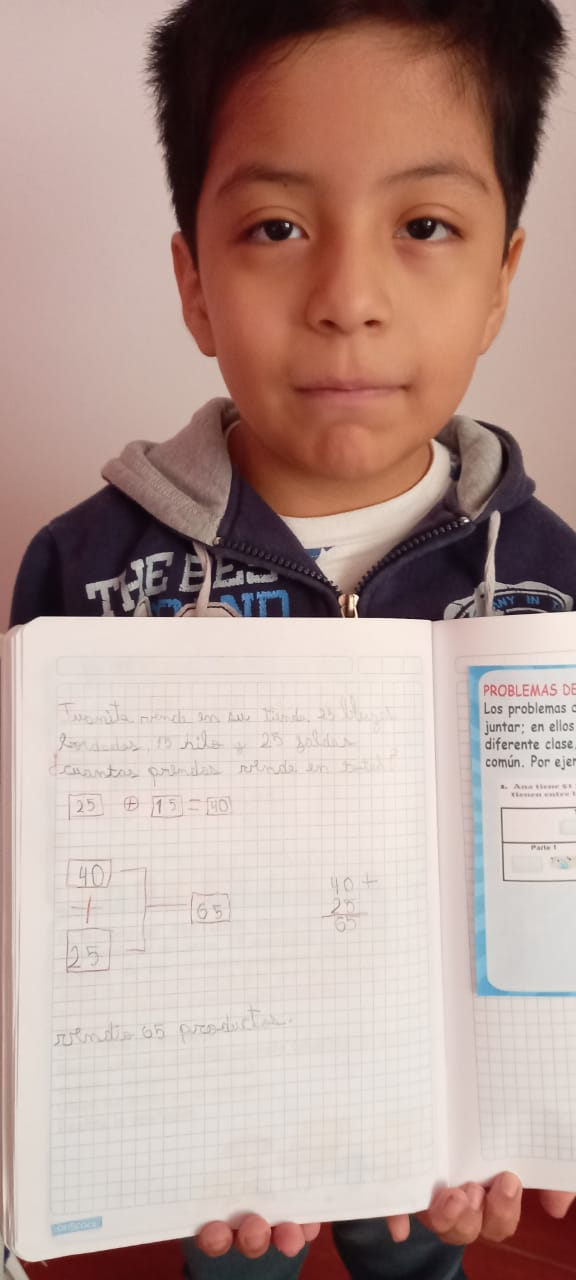 THE BES
Juanita vende en su tienda, 25 blusas
bordadas, 15 hilo y 25 faldas
¿cuantas prendas vende en total?
25 + 15 = 40
40
+
25
65
40 +
25
65
vendio 65 productos.
PROBLEMAS DE
Los problemas
juntar; en ellos
diferente clase,
común. Por ejer
1. Ana tiene
tienen entre
Parte 1